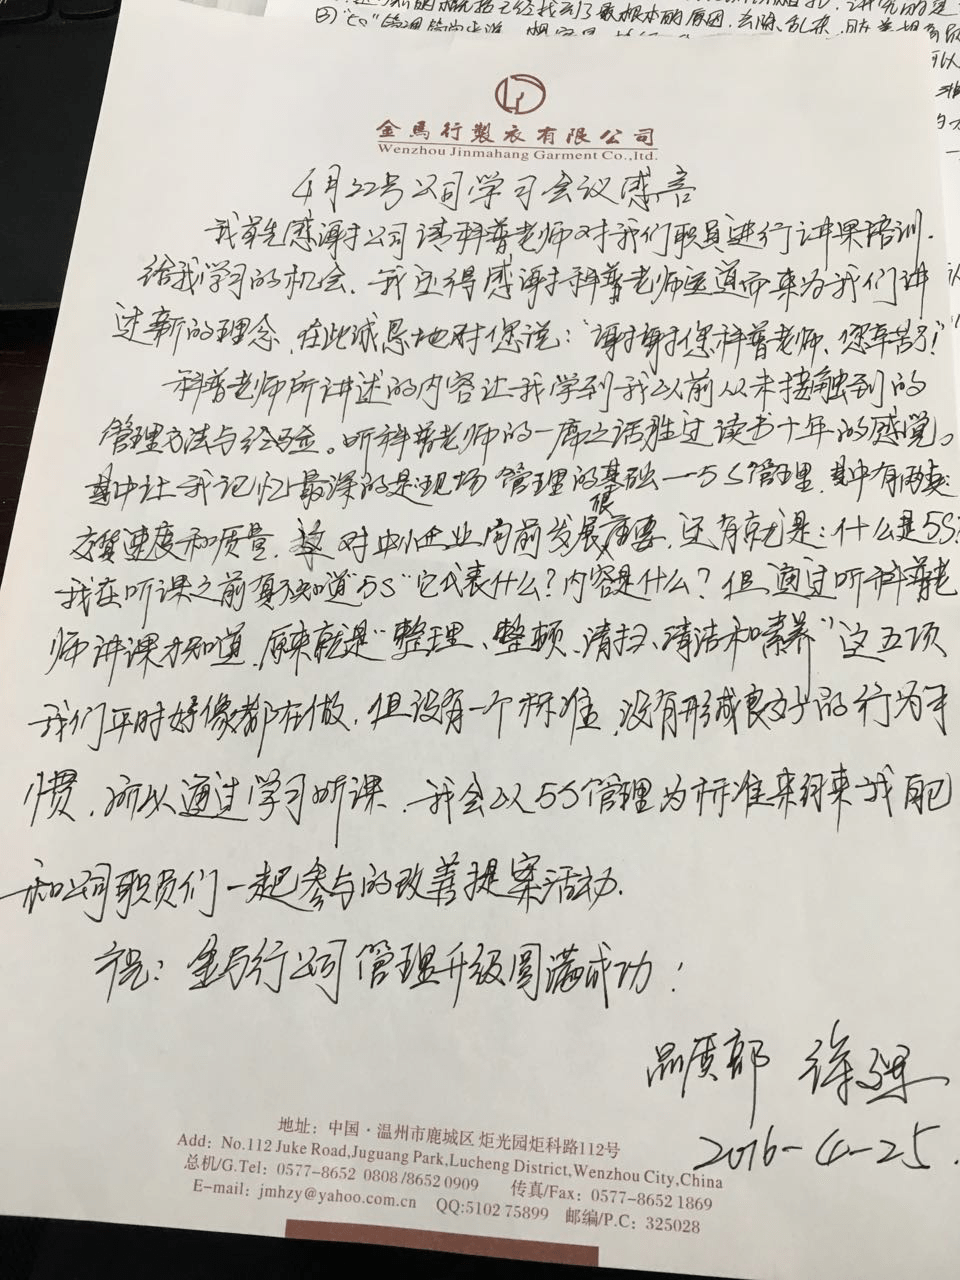 金馬行製衣有限公司
Wenzhou Jinmahang Garment Co.,ltd.
4月22号公司学习会议感言
我首先感谢公司请科普老师对我们职员进行讲课培训.
给我学习的机会. 我还得感谢科普老师远道而来为我们讲
述新的理念. 在此诚恳地对您说:"谢谢您科普老师、您辛苦了!"
科普老师所讲述的内容让我学到我以前从未接触到的
管理方法与经验。听科普老师的一席之话胜过读书十年的感觉。
其中让我记忆最深的是现场管理的基础—5S管理. 其中有两卖:
交货速度和质量. 这对中小企业向前发展很重要. 还有就是:什么是5S?
我在听课之前真不知道"5S"它代表什么?内容是什么?但通过听科普老
师讲课才知道. 原来就是"整理、整顿、清扫、清洁和素养"这五项
我们平时好像都在做. 但没有一个标准. 没有形成良好的行为习
惯. 所以通过学习听课. 我会以5S管理为标准来约束我自己
和公司职员们一起参与的改善提案活动.
祝:金马行公司管理升级圆满成功!
品质部 徐
2016-4-25.
地址:中国·温州市鹿城区炬光园炬科路112号
Add: No.112 Juke Road,Juguang Park,Lucheng District,Wenzhou City,China
总机/G.Tel: 0577-8652 0808/8652 0909 传真/Fax: 0577-8652 1869
E-mail: jmhzy@yahoo.com.cn QQ:5102 75899 邮编/P.C: 325028